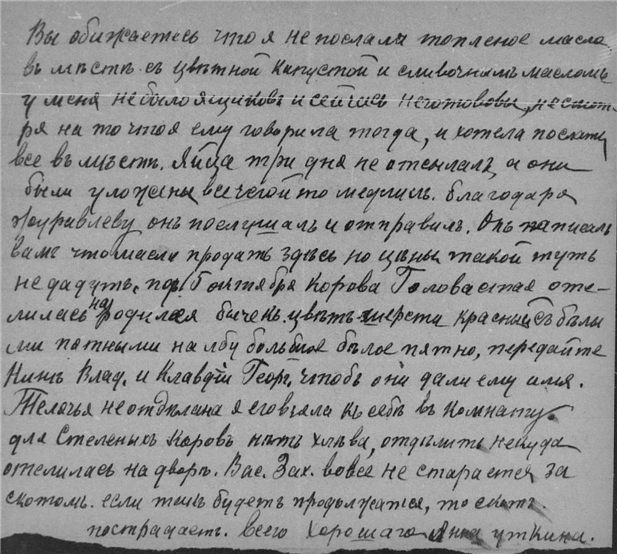 Вы обижаетесь что я не послала топленое масло
въ мѣстѣ съ цвѣтной капустой и сливочнымъ масломъ
у меня небыло ящиковъ и сейчасъ неготововы, несмот-
ря на то что я ему говорила тогда, и хотела послать
все въ мѣстѣ. Яйца три дня не отсылалъ, а они
были уложены все чегой то медлилъ. благодаря
Журавлеву онъ послушалъ и отправилъ. Онъ написалъ
вамъ что масло продать здѣсь но цѣны такой тутъ
не дадутъ, 5 октября Корова Головастая оте-
лилась родился бычекъ. цвѣтъ шерсти красный съ бѣлы
ми пятными на лбу большое бѣлое пятно, передайте
Нинѣ Влад. и Клавдіи Георг. чтобъ они дали ему имя.
Телячья неотдѣлана я его взяла къ себѣ въ комнату.
для Стеленыхъ Коровъ нѣтъ хлѣва, отдѣлить некуда
отелилась на дворѣ. Вас. Зах. вовсе не старается за
скотомъ. если такъ будетъ продолжатся, то скотъ
пострадаетъ. Всего Хорошаго Анна Уткина.